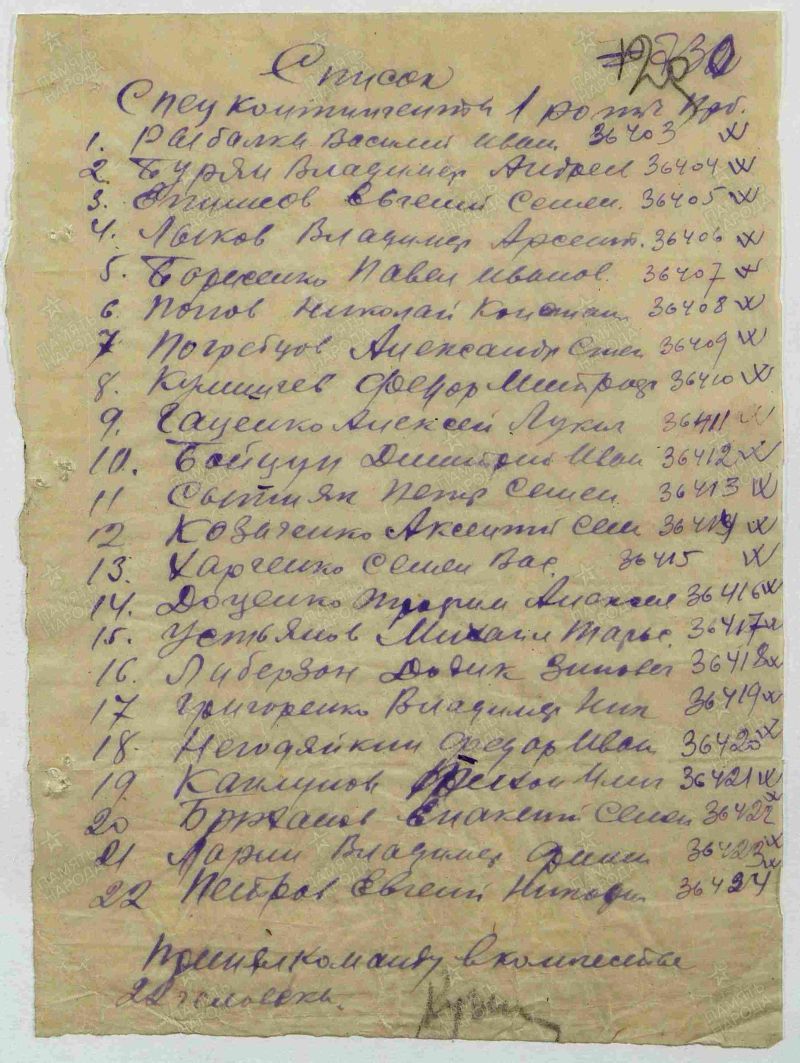 Список
Спец контингента 1 роты
1. Рыбалка Василий Иван 36403
2. Бурян Владимир Андреев 36404
3. Евгений Семен. 36405
4. Лыков Владимир Арсент. 36406
5. Борисенко Павел Иванов. 36407
6. Попов Николай Констан 36408
7 Погребцов Александр Сем 36409
8. Федор Митроф 36410
9. Гаценко Алексей Лукич 36411
10. Бойцун Дмитрий Иван 36412
11 Сытняк Петр Семен 36413
12 Козаченко Аксентий Сем 36414
13. Харченко Семен Вас. 36415
14. Доценко Трофим Алексеев 36416
15. Устьянов Михаил Тарас. 36417
16. Либерзон Додик Зиновев 36418
17 Григоренко Владимир Ник 36419
18. Негодяйкин Федор Иван 36420
19 Каплунов Илич 36421
20 Семен 36422
21 Ларин Владимир 36423
22 Петров Евгений Никифор 36424
Принял команду в количестве
22 человека.